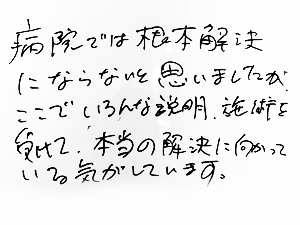 病院では根本解決
にならないと思いましたが、
ここでいろんな説明、施術を
受けて、本当の解決に向かって
いる気がしています。